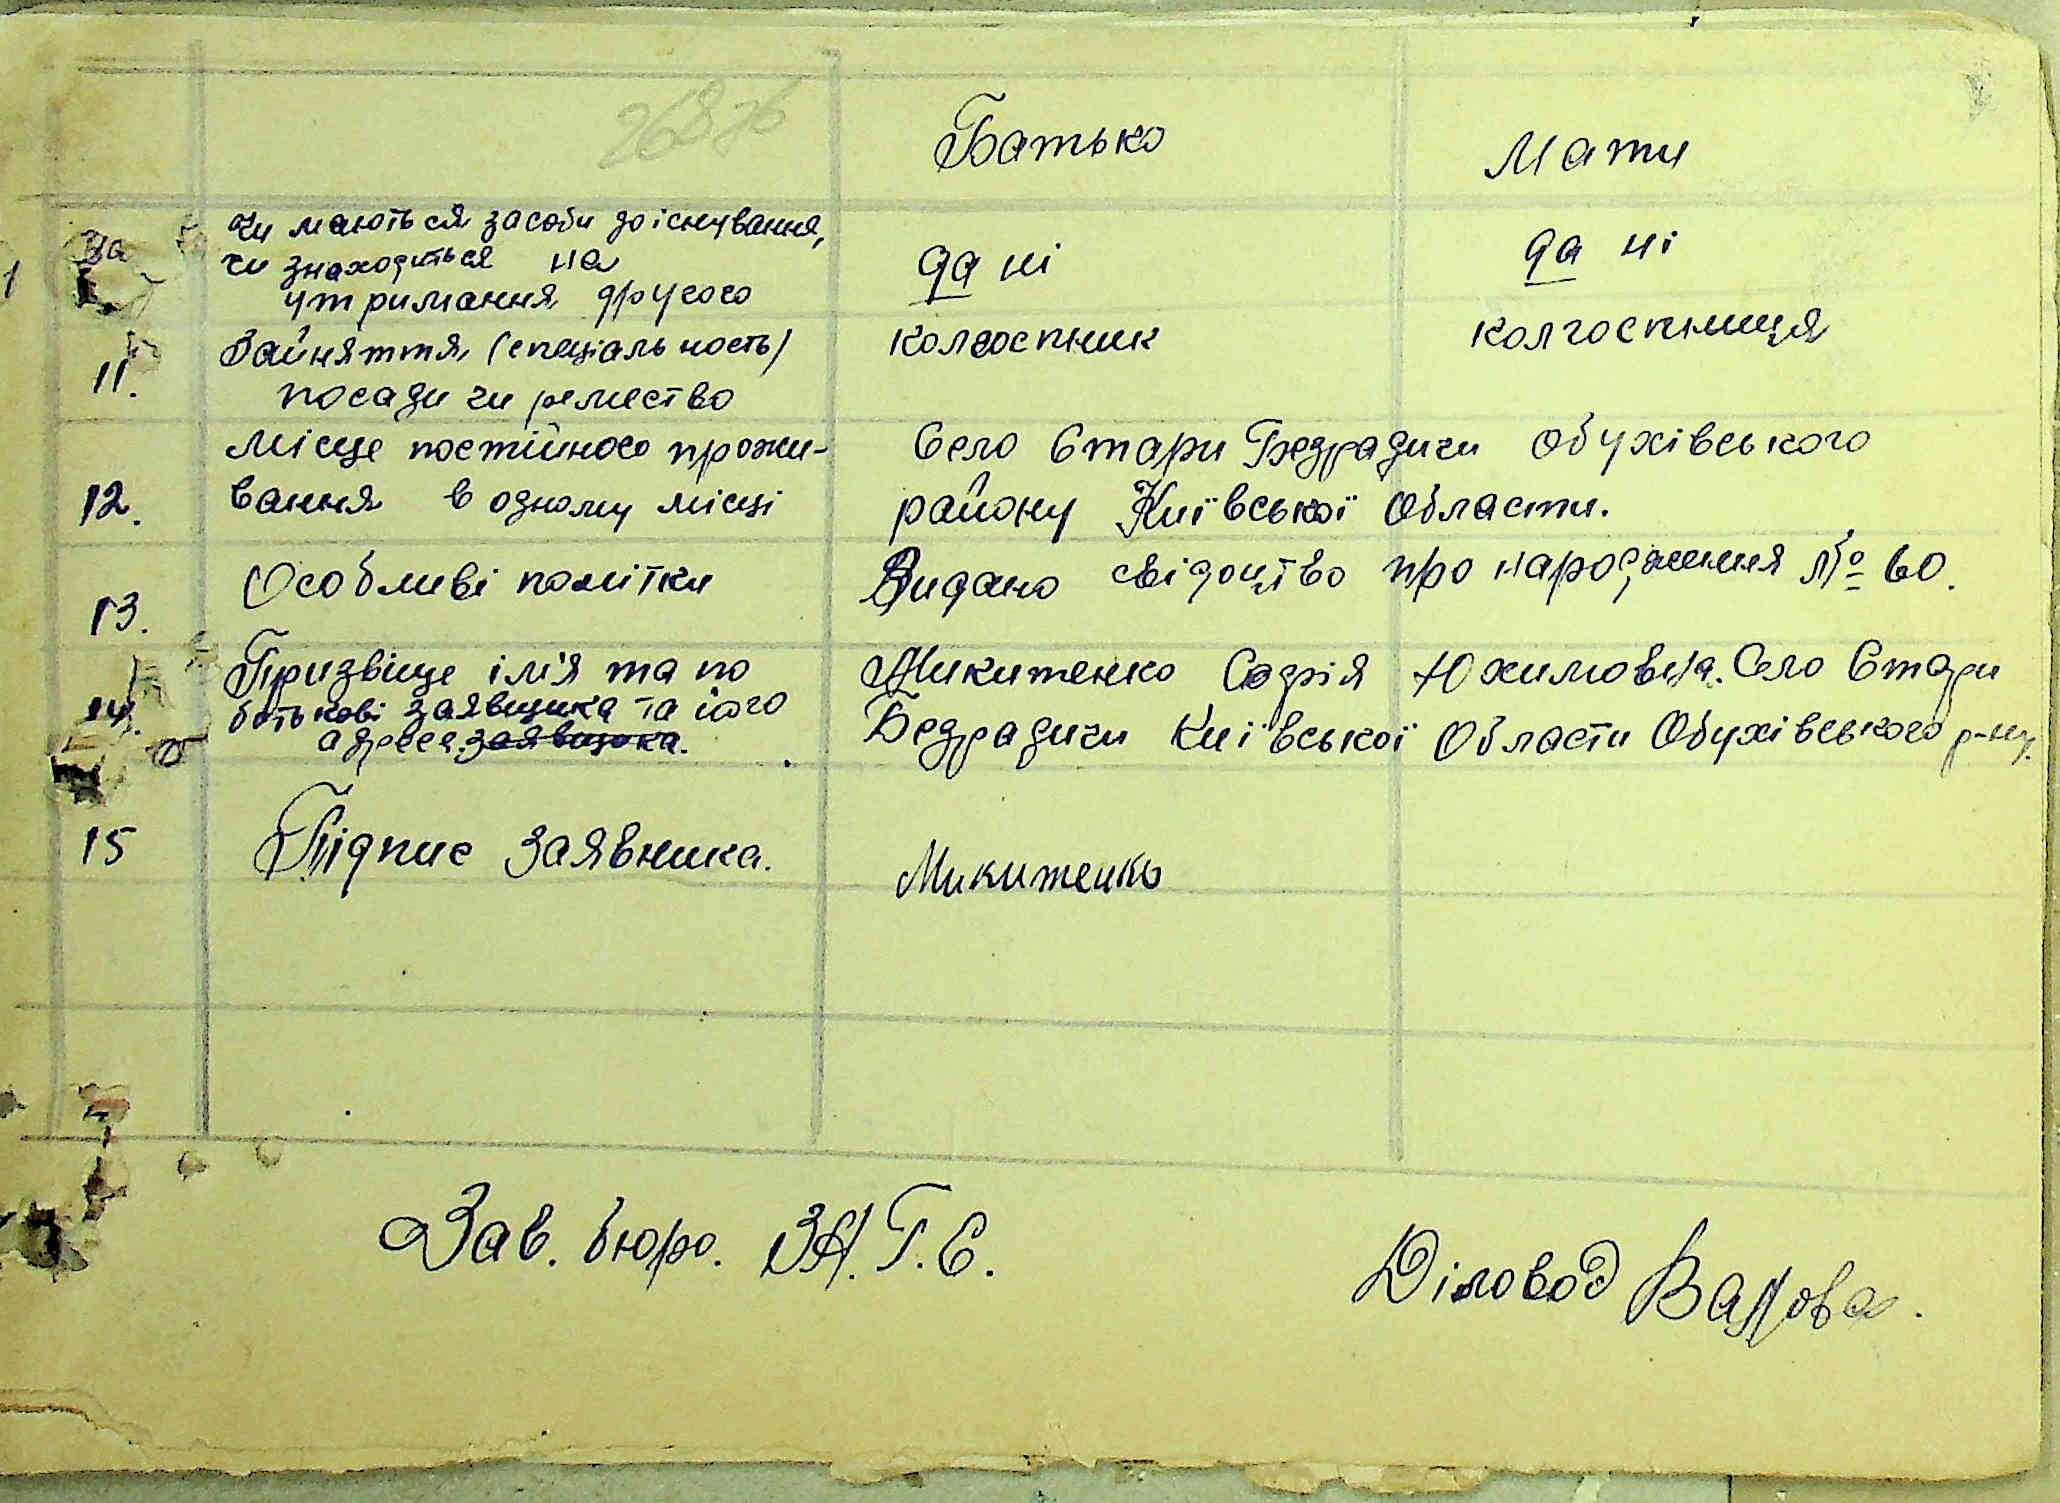 26876
Батько
Мати
За
Чи мають ся засоби до існування,
чи знаходиться на
утримання другого
да ні
да ні
11.
Займяття, (спеціальность)
посади чи ремество
колгоспник
колгоспниця
12.
Місце постійного прожи-
вання в одному місці
Село Стари Бедрадичи Обухівського
району Київської Області.
13.
Особливі помітки
Видано свідоцтво про народження № 60.
14.
Призвіще імія та по
батькові заявщика та його
адреса заявщика.
Микитенко Софія Юхимовна. Село Стари
Бедрадичи Київської Области Обухівського р-ну.
15
Підпис заявника.
Микитенко
Зав. бюро. ЗА.Г.С.
Діловод